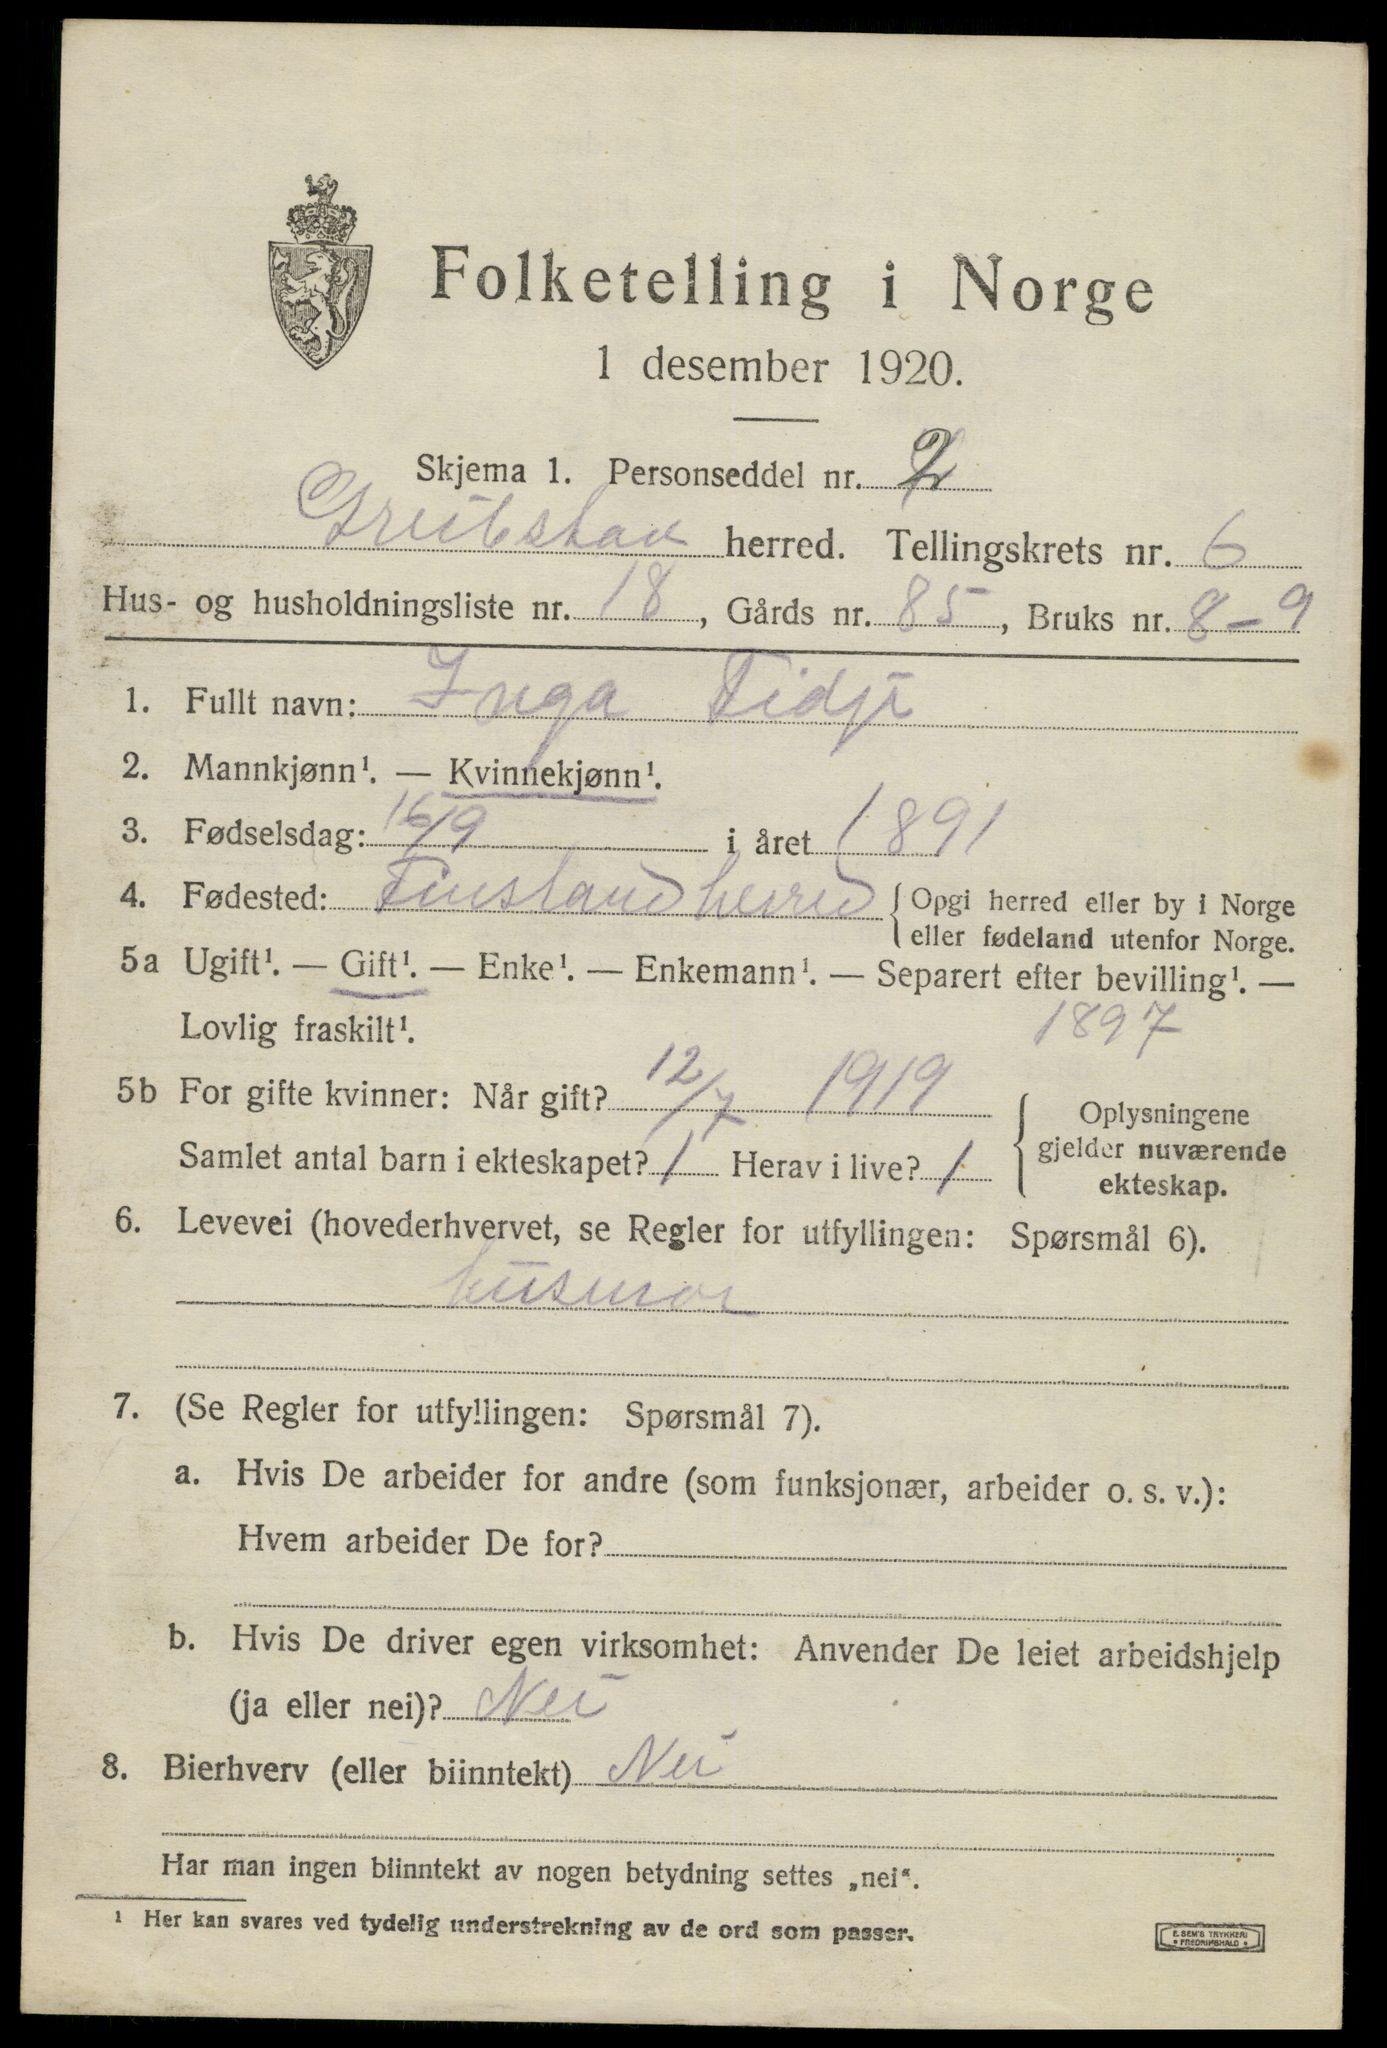 Folketelling i Norge
1 desember 1920.
Skjema 1. Personseddel nr. 2
Greibstad herred. Tellingskrets nr. 6
Hus- og husholdningsliste nr. 18, Gårds nr. 85, Bruks nr. 8-9
1. Fullt navn: Inga Tidje
2. Mannkjønn¹. — Kvinnekjønn¹.
3. Fødselsdag: 16/9 i året 1891
4. Fødested: Finsland herred { Opgi herred eller by i Norge
eller fødeland utenfor Norge.
5a Ugift¹. — Gift¹. — Enke¹. — Enkemann¹. — Separert efter bevilling¹. —
Lovlig fraskilt¹. 1897
5b For gifte kvinner: Når gift? 12/7 1919
Samlet antal barn i ekteskapet? 1 Herav i live? 1
{ Oplysningene
gjelder nuværende
ekteskap.
6. Levevei (hovederhvervet, se Regler for utfyllingen: Spørsmål 6).
husmor
7. (Se Regler for utfyllingen: Spørsmål 7).
a. Hvis De arbeider for andre (som funksjonær, arbeider o. s. v.):
Hvem arbeider De for?
b. Hvis De driver egen virksomhet: Anvender De leiet arbeidshjelp
(ja eller nei)? Nei
8. Bierhverv (eller biinntekt) Nei
Har man ingen biinntekt av nogen betydning settes „nei“.
¹ Her kan svares ved tydelig understrekning av de ord som passer.
E. SEM'S TRYKKERI
• FREDRIKSHALD •